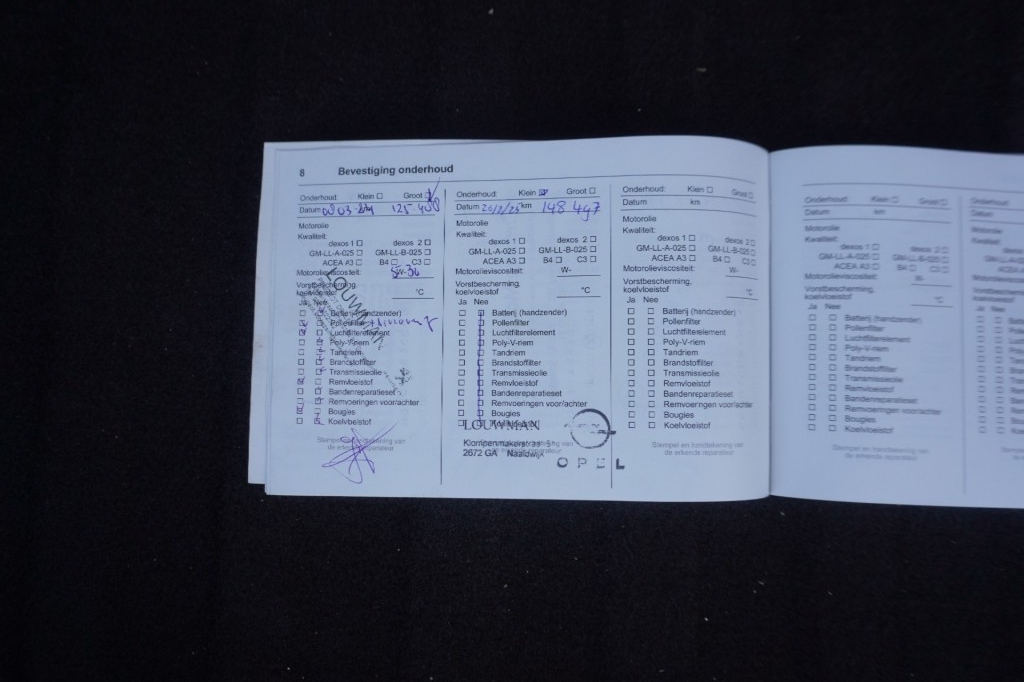 8 Bevestiging onderhoud
Onderhoud: Klein ☐ Groot ☐
Datum 125 408
Motorolie
Kwaliteit:
dexos 1 ☐ dexos 2 ☐
GM-LL-A-025 ☐ GM-LL-B-025 ☐
ACEA A3 ☐ B4 ☐ C3 ☐
Motorolieviscositeit: 5W-30
Vorstbescherming,
koelvloeistof °C
Ja Nee
Batterij (handzender)
Pollenfilter
Luchtfilterelement
Poly-V-riem
Tandriem
Brandstoffilter
Transmissieolie
Remvloeistof
Bandenreparatieset
Remvoeringen voor/achter
Bougies
Koelvloeistof
LOUWMAN
Stempel en handtekening van
de erkende reparateur
Onderhoud: Klein ☑ Groot ☐
Datum 20/2/25 km 148 497
Motorolie
Kwaliteit:
dexos 1 ☐ dexos 2 ☐
GM-LL-A-025 ☐ GM-LL-B-025 ☐
ACEA A3 ☐ B4 ☐ C3 ☐
Motorolieviscositeit: W-
Vorstbescherming,
koelvloeistof °C
Ja Nee
☐ ☐ Batterij (handzender)
☐ ☐ Pollenfilter
☐ ☐ Luchtfilterelement
☐ ☐ Poly-V-riem
☐ ☐ Tandriem
☐ ☐ Brandstoffilter
☐ ☐ Transmissieolie
☐ ☐ Remvloeistof
☐ ☐ Bandenreparatieset
☐ ☐ Remvoeringen voor/achter
☐ ☐ Bougies
☐ ☐ Koelvloeistof
LOUWMAN
Klompenmakerstraat
2672 GA Naaldwijk
OPEL
Onderhoud: Klein ☐ Groot ☐
Datum km
Motorolie
Kwaliteit:
dexos 1 ☐ dexos 2 ☐
GM-LL-A-025 ☐ GM-LL-B-025 ☐
ACEA A3 ☐ B4 ☐ C3 ☐
Motorolieviscositeit: W-
Vorstbescherming,
koelvloeistof °C
Ja Nee
☐ ☐ Batterij (handzender)
☐ ☐ Pollenfilter
☐ ☐ Luchtfilterelement
☐ ☐ Poly-V-riem
☐ ☐ Tandriem
☐ ☐ Brandstoffilter
☐ ☐ Transmissieolie
☐ ☐ Remvloeistof
☐ ☐ Bandenreparatieset
☐ ☐ Remvoeringen voor/achter
☐ ☐ Bougies
☐ ☐ Koelvloeistof
Stempel en handtekening van
de erkende reparateur
Onderhoud: Klein ☐ Groot ☐
Datum km
Motorolie
Kwaliteit:
dexos 1 ☐ dexos 2 ☐
GM-LL-A-025 ☐ GM-LL-B-025 ☐
ACEA A3 ☐ B4 ☐ C3 ☐
Motorolieviscositeit: W-
Vorstbescherming,
koelvloeistof °C
Ja Nee
☐ ☐ Batterij (handzender)
☐ ☐ Pollenfilter
☐ ☐ Luchtfilterelement
☐ ☐ Poly-V-riem
☐ ☐ Tandriem
☐ ☐ Brandstoffilter
☐ ☐ Transmissieolie
☐ ☐ Remvloeistof
☐ ☐ Bandenreparatieset
☐ ☐ Remvoeringen voor/achter
☐ ☐ Bougies
☐ ☐ Koelvloeistof
Stempel en handtekening van
de erkende reparateur